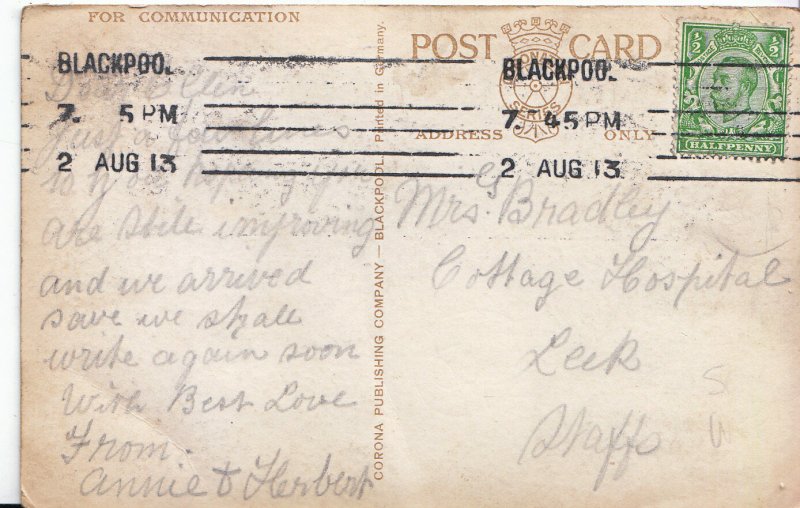 FOR COMMUNICATION
BLACKPOOL
7. 5 PM
2 AUG 13
Just a few lines
to
hoping you
are still improving
and we arrived
save we shall
write again soon
With Best Love
From.
Annie & Herbert
CORONA PUBLISHING COMPANY — BLACKPOOL. Printed in Germany.
POST CARD
SERIES
ADDRESS ONLY
BLACKPOOL
7. 45 PM
2 AUG 13
1/2 1/2
HALFPENNY
Mrs. G Bradley
Cottage Hospital
Leek
Staffs